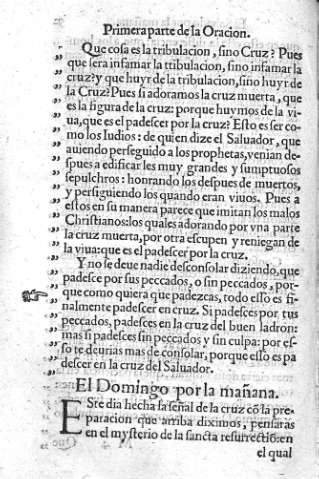 Primera parte de la Oracion.
Que cosa es la tribulacion, sino Cruz? Pues
que sera infamar la tribulacion, sino infamar la
cruz? y que huyr de la tribulacion, sino huyr de
la Cruz? Pues si adoramos la cruz muerta, que
es la figura de la cruz: porque huymos de la vi-
ua, que es el padescer por la cruz? Esto es ser co-
mo los Iudios: de quien dize el Saluador, que
auiendo perseguido a los prophetas, venian de-
spues a edificar les muy grandes y sumptuosos
sepulchros: honrando los despues de muertos,
y persiguiendo los quando eran viuos. Pues a
estos en su manera parece que imitan los malos
Christianos: los quales adorando por vna parte
la cruz muerta, por otra escupen y reniegan de
la viua: que es el padescer por la cruz.
Y no se deue nadie desconsolar diziendo, que
padesce por sus peccados, o sin peccados, por-
que como quiera que padezcas, todo esso es fi-
nalmente padescer en cruz. Si padesces por tus
peccados, padesces en la cruz del buen ladron:
mas si padesces sin peccados y sin culpa: por es-
so te deurias mas de consolar, porque esso es pa
descer en la cruz del Saluador.
El Domingo por la mañana.
ESte dia hecha la señal de la cruz cõ la pre-
paracion que arriba diximos, pensaras
en el mysterio de la sancta resurrectiõ: en
el qual